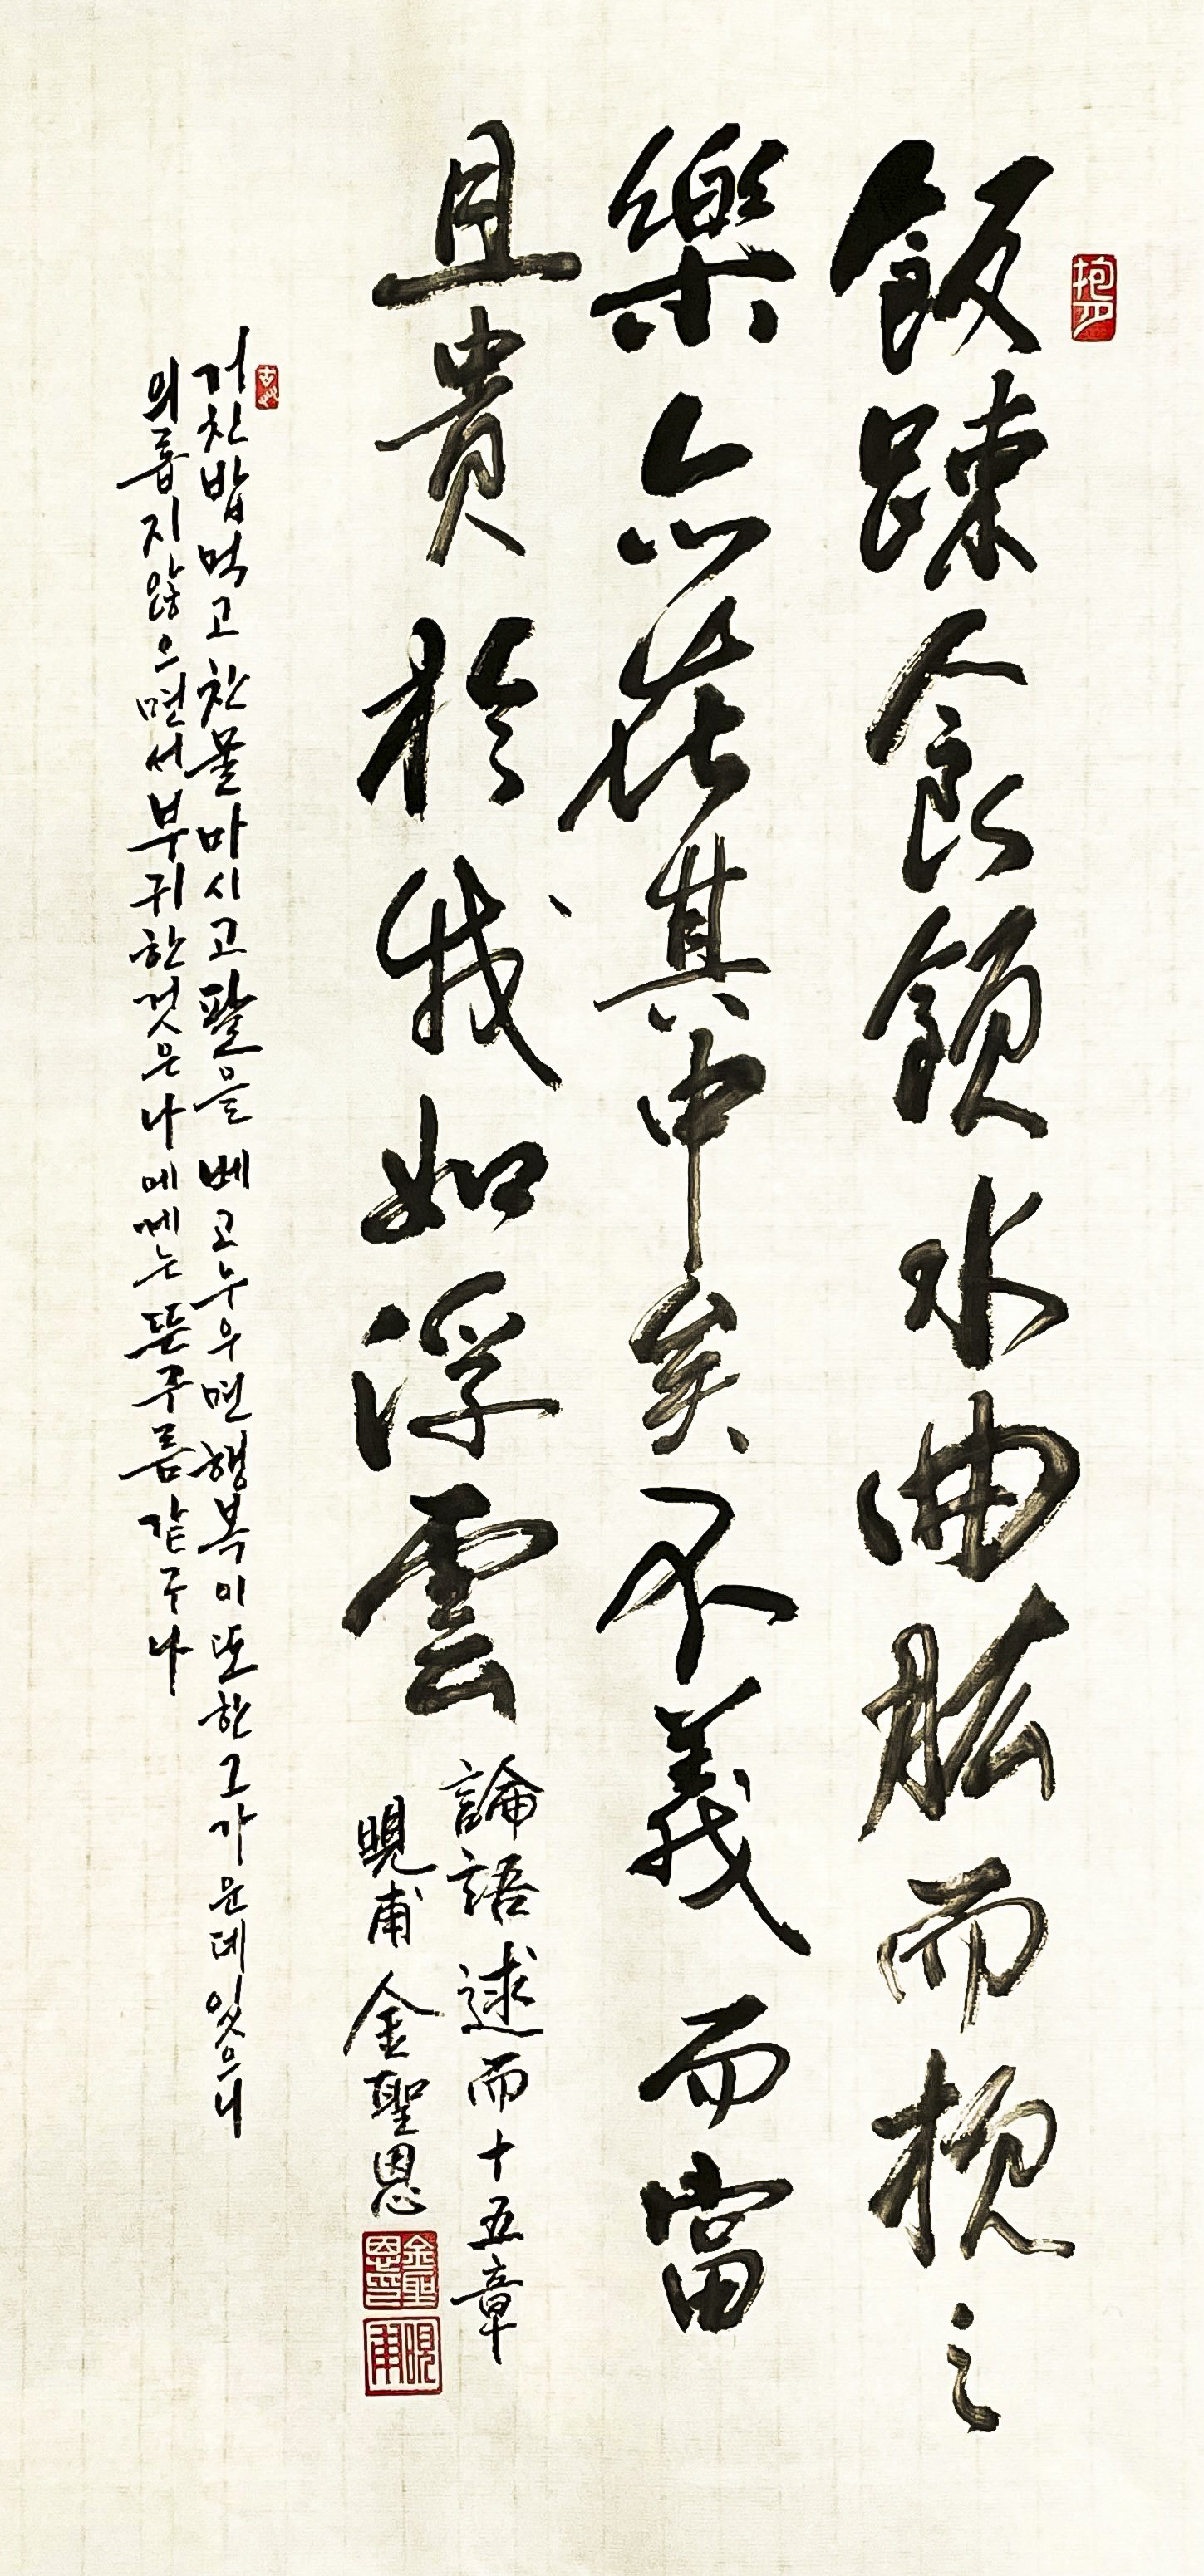 飯踈食飮水曲肱而枕之
樂亦在其中矣不義而富
且貴於我如浮雲
論語述而十五章
晛甫 金聖恩
金聖恩印
晛甫
거친밥먹고찬물마시고팔을베고누우면행복이또한그가운데있으니
의롭지않으면서부귀한것은나에게는뜬구름같구나